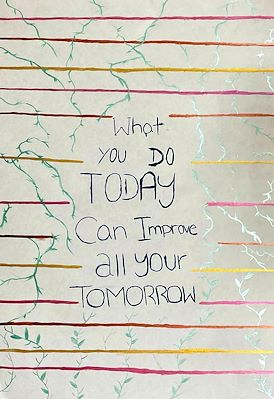 What
YOU DO
TODAY
Can Improve
all your
TOMORROW